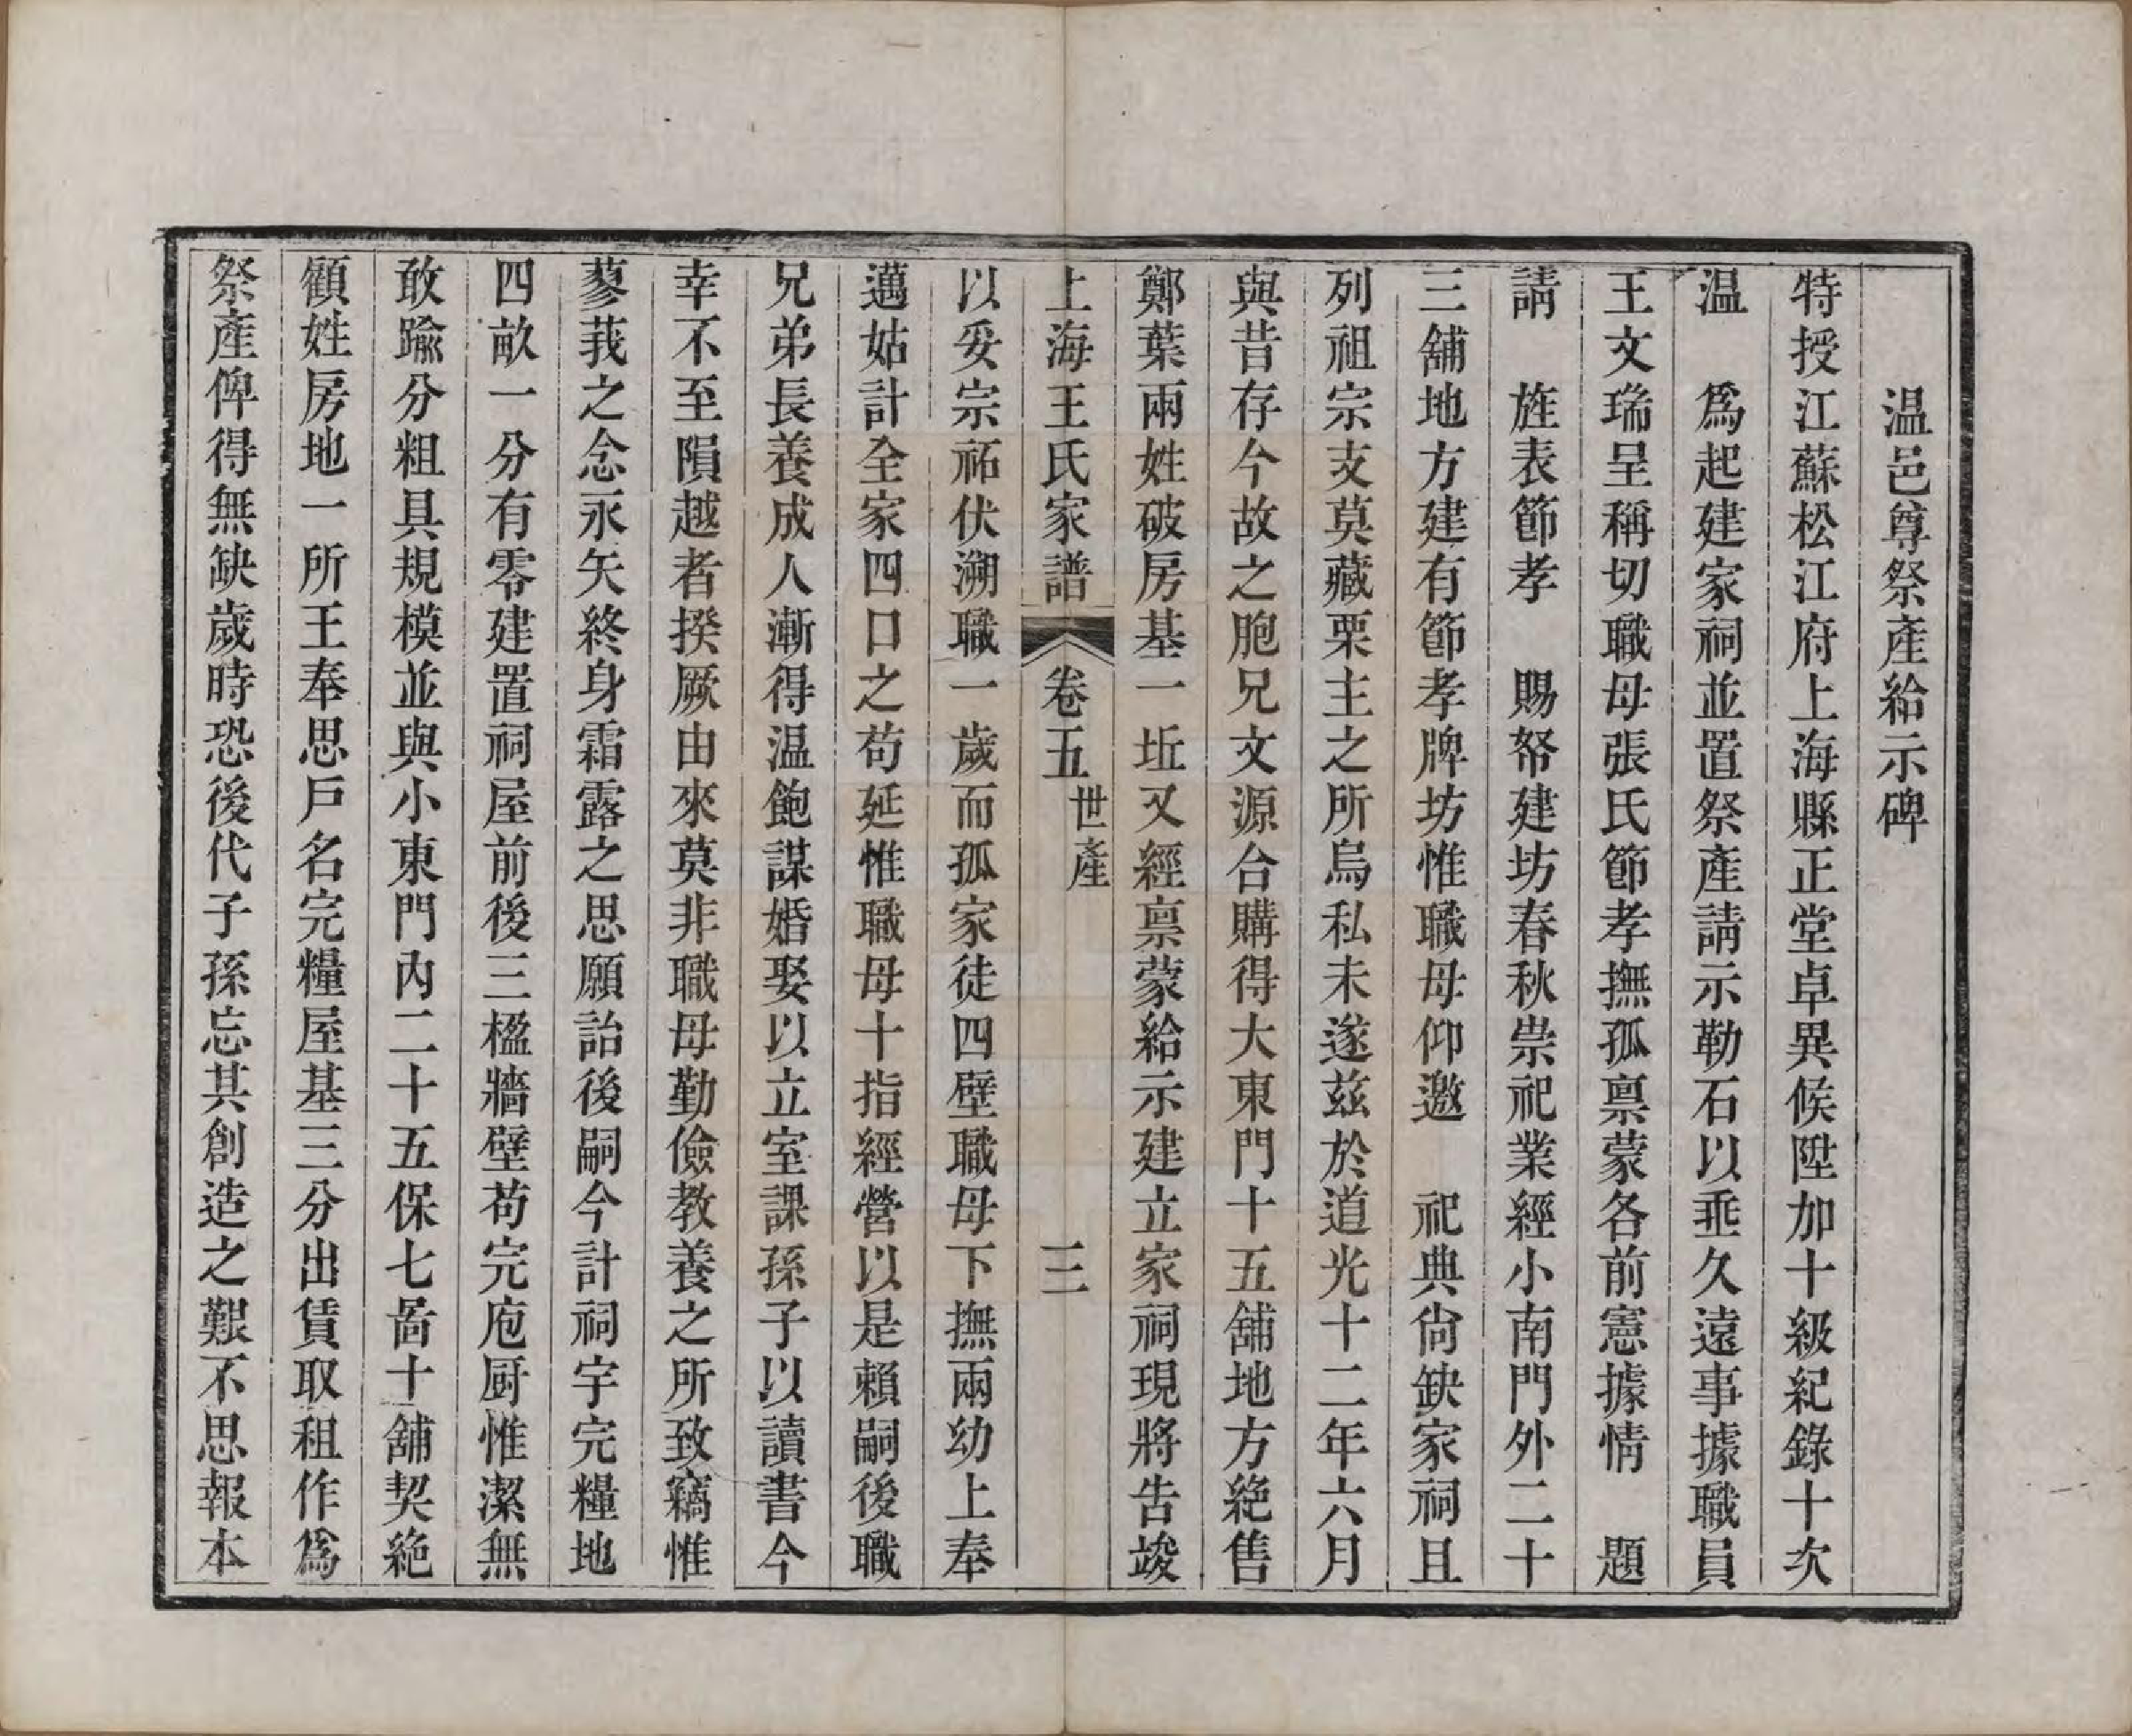 温邑尊祭產給示碑
特授江蘇松江府上海縣正堂卓異候陞加十級紀錄十次
温　爲起建家祠並置祭產請示勒石以垂久遠事據職員
王文瑞呈稱切職母張氏節孝撫孤禀蒙各前憲據情　題
請　旌表節孝　賜帑建坊春秋祟祀業經小南門外二十
三舖地方建有節孝牌坊惟職母仰邀　祀典尙缺家祠且
列祖宗支莫藏栗主之所烏私未遂茲於道光十二年六月
與昔存今故之胞兄文源合購得大東門十五舖地方絕售
鄭葉兩姓破房基一坵又經禀蒙給示建立家祠現將告竣
上海王氏家譜　卷五　世產　三
以妥宗祏伏溯職一歲而孤家徒四壁職母下撫兩幼上奉
邁姑計全家四口之苟延惟職母十指經營以是賴嗣後職
兄弟長養成人漸得温飽謀婚娶以立室課孫子以讀書今
幸不至隕越者揆厥由來莫非職母勤儉教養之所致竊惟
蓼莪之念永矢終身霜露之思願詒後嗣今計祠宇完糧地
四畝一分有零建置祠屋前後三楹牆壁苟完庖厨惟潔無
敢踰分粗具規模並與小東門內二十五保七啚十舖契絕
顧姓房地一所王奉思戶名完糧屋基三分出賃取租作爲
祭產俾得無缺歲時恐後代子孫忘其創造之艱不思報本